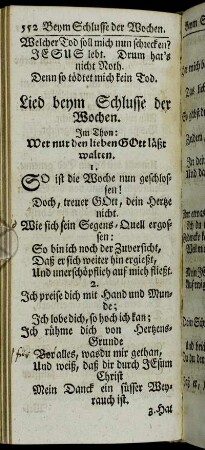 552 Beym Schlusse der Wochen.
Welcher Tod soll mich nun schrecken?
JESUS lebt. Drum hat's
nicht Noth.
Denn so tödtet mich kein Tod.
Lied beym Schlusse der
Wochen.
Im Thon:
Wer nur den lieben GOtt läßt
walten.
1.
SO ist die Woche nun geschlos-
sen!
Doch, treuer GOtt, dein Hertze
nicht.
Wie sich sein Segens-Quell ergos-
sen:
So bin ich noch der Zuversicht,
Daß er sich weiter hin ergießt,
Und unerschöpflich auf mich fließt.
2.
Ich preise dich mit Hand und Mun-
de;
Ich lobe dich, so hoch ich kan;
Ich rühme dich von Hertzens-
Grunde
für Vor alles, was du mir gethan,
Und weiß, daß dir durch JEsum
Christ
Mein Danck ein süsser Wey-
rauch ist.
3. Hat